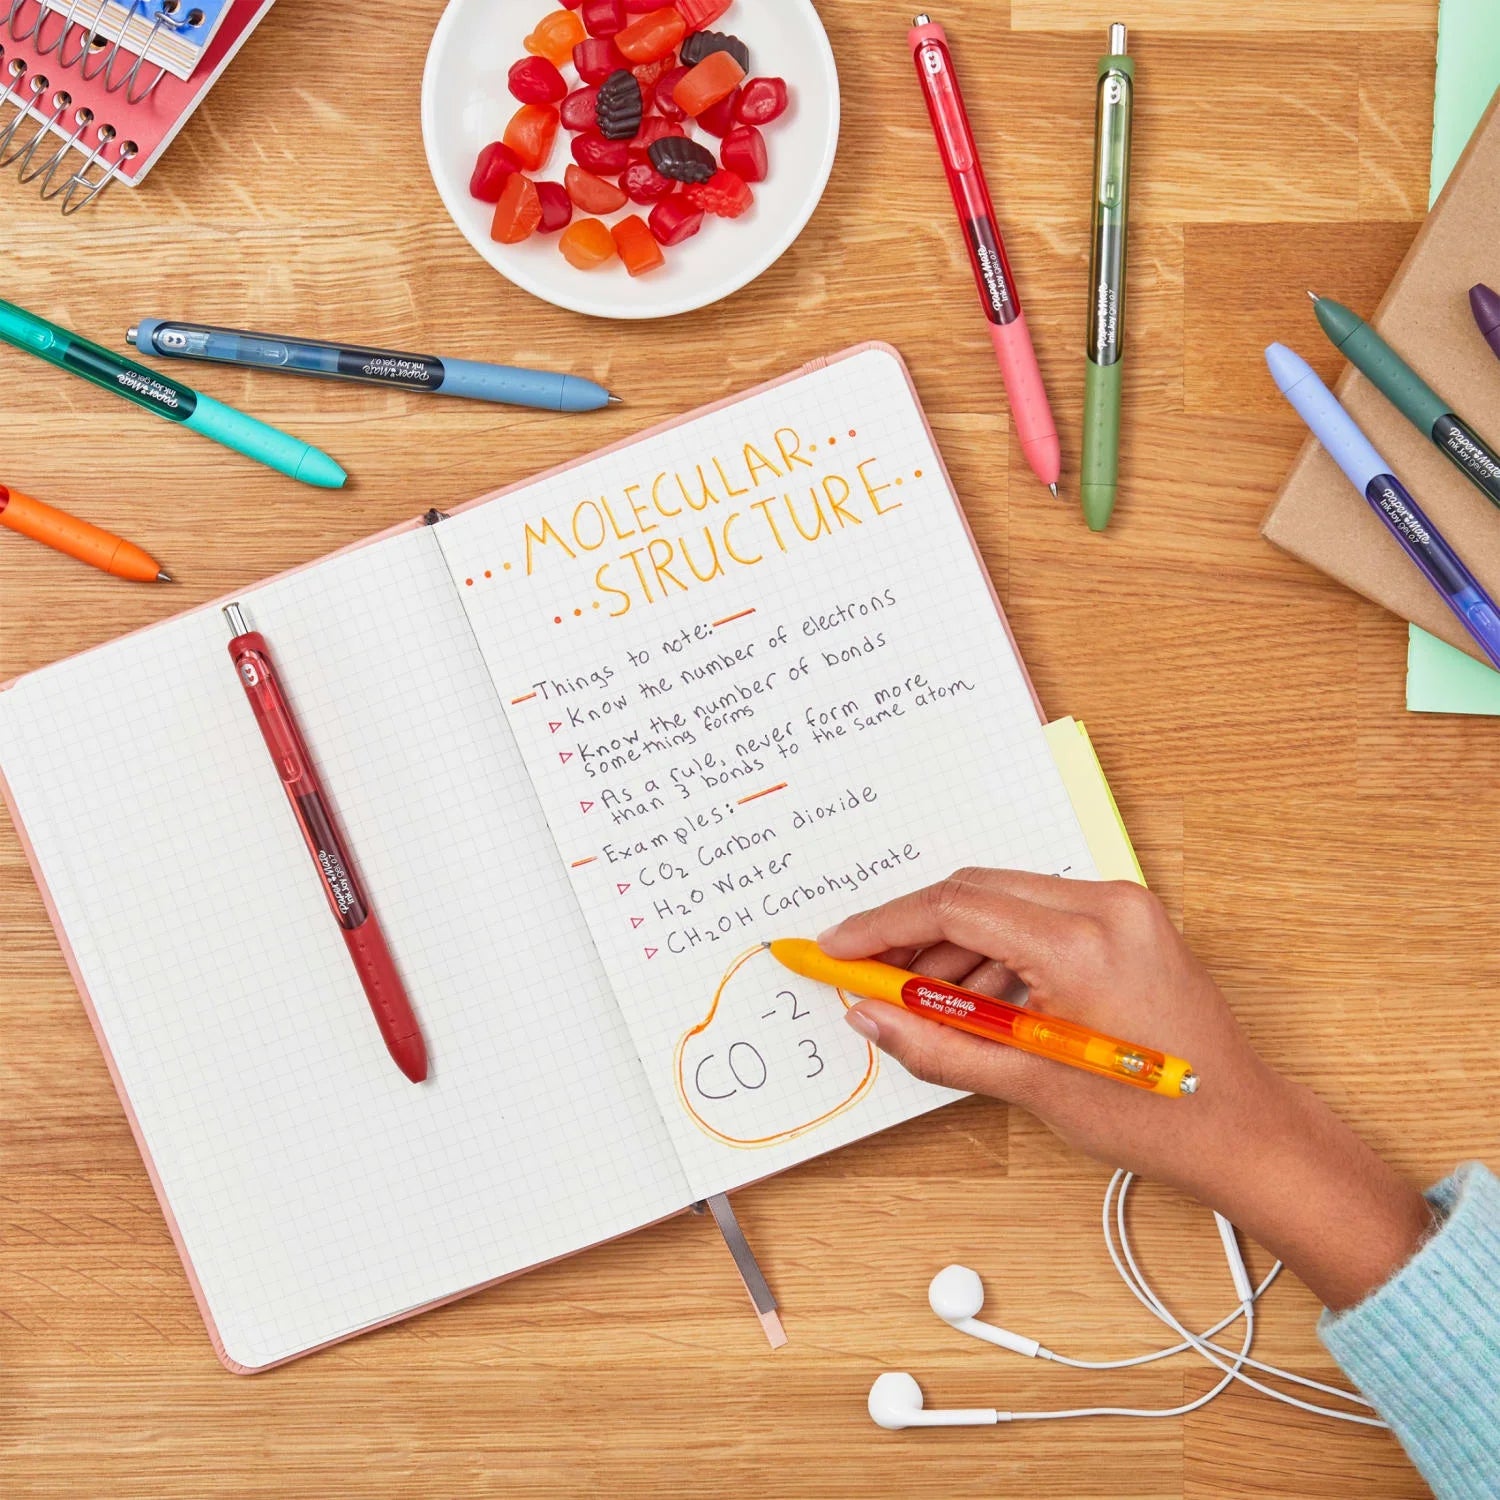 MOLECULAR
STRUCTURE
Things to note:
Know the number of electrons
Know the number of bonds
something forms
As a rule, never form more
than 3 bonds to the same atom
Examples:
CO2 Carbon dioxide
H2O Water
CH2OH Carbohydrate
-2
CO 3
Paper Mate
InkJoy gel 0.7
Paper Mate
InkJoy gel 0.7
Paper Mate
InkJoy gel 0.7
Paper Mate
InkJoy gel 0.7
Paper Mate
InkJoy gel 0.7
Paper Mate
InkJoy gel 0.7
Paper Mate
InkJoy gel 0.7
Paper Mate
InkJoy gel 0.7